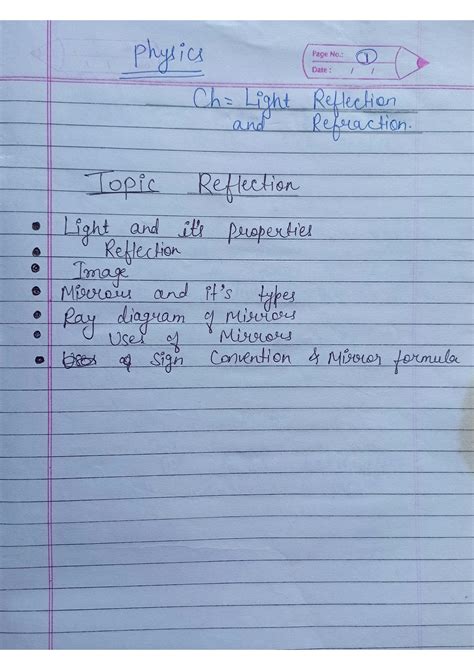 Physics
Page No.: 1
Date: / /
Ch = Light Reflection
and Refraction.
Topic Reflection
• Light and it's properties
• Reflection
• Image
• Mirrors and it's types
• Ray diagram of Mirrors
• Uses of Mirrors
• Sign Convention & Mirror formula